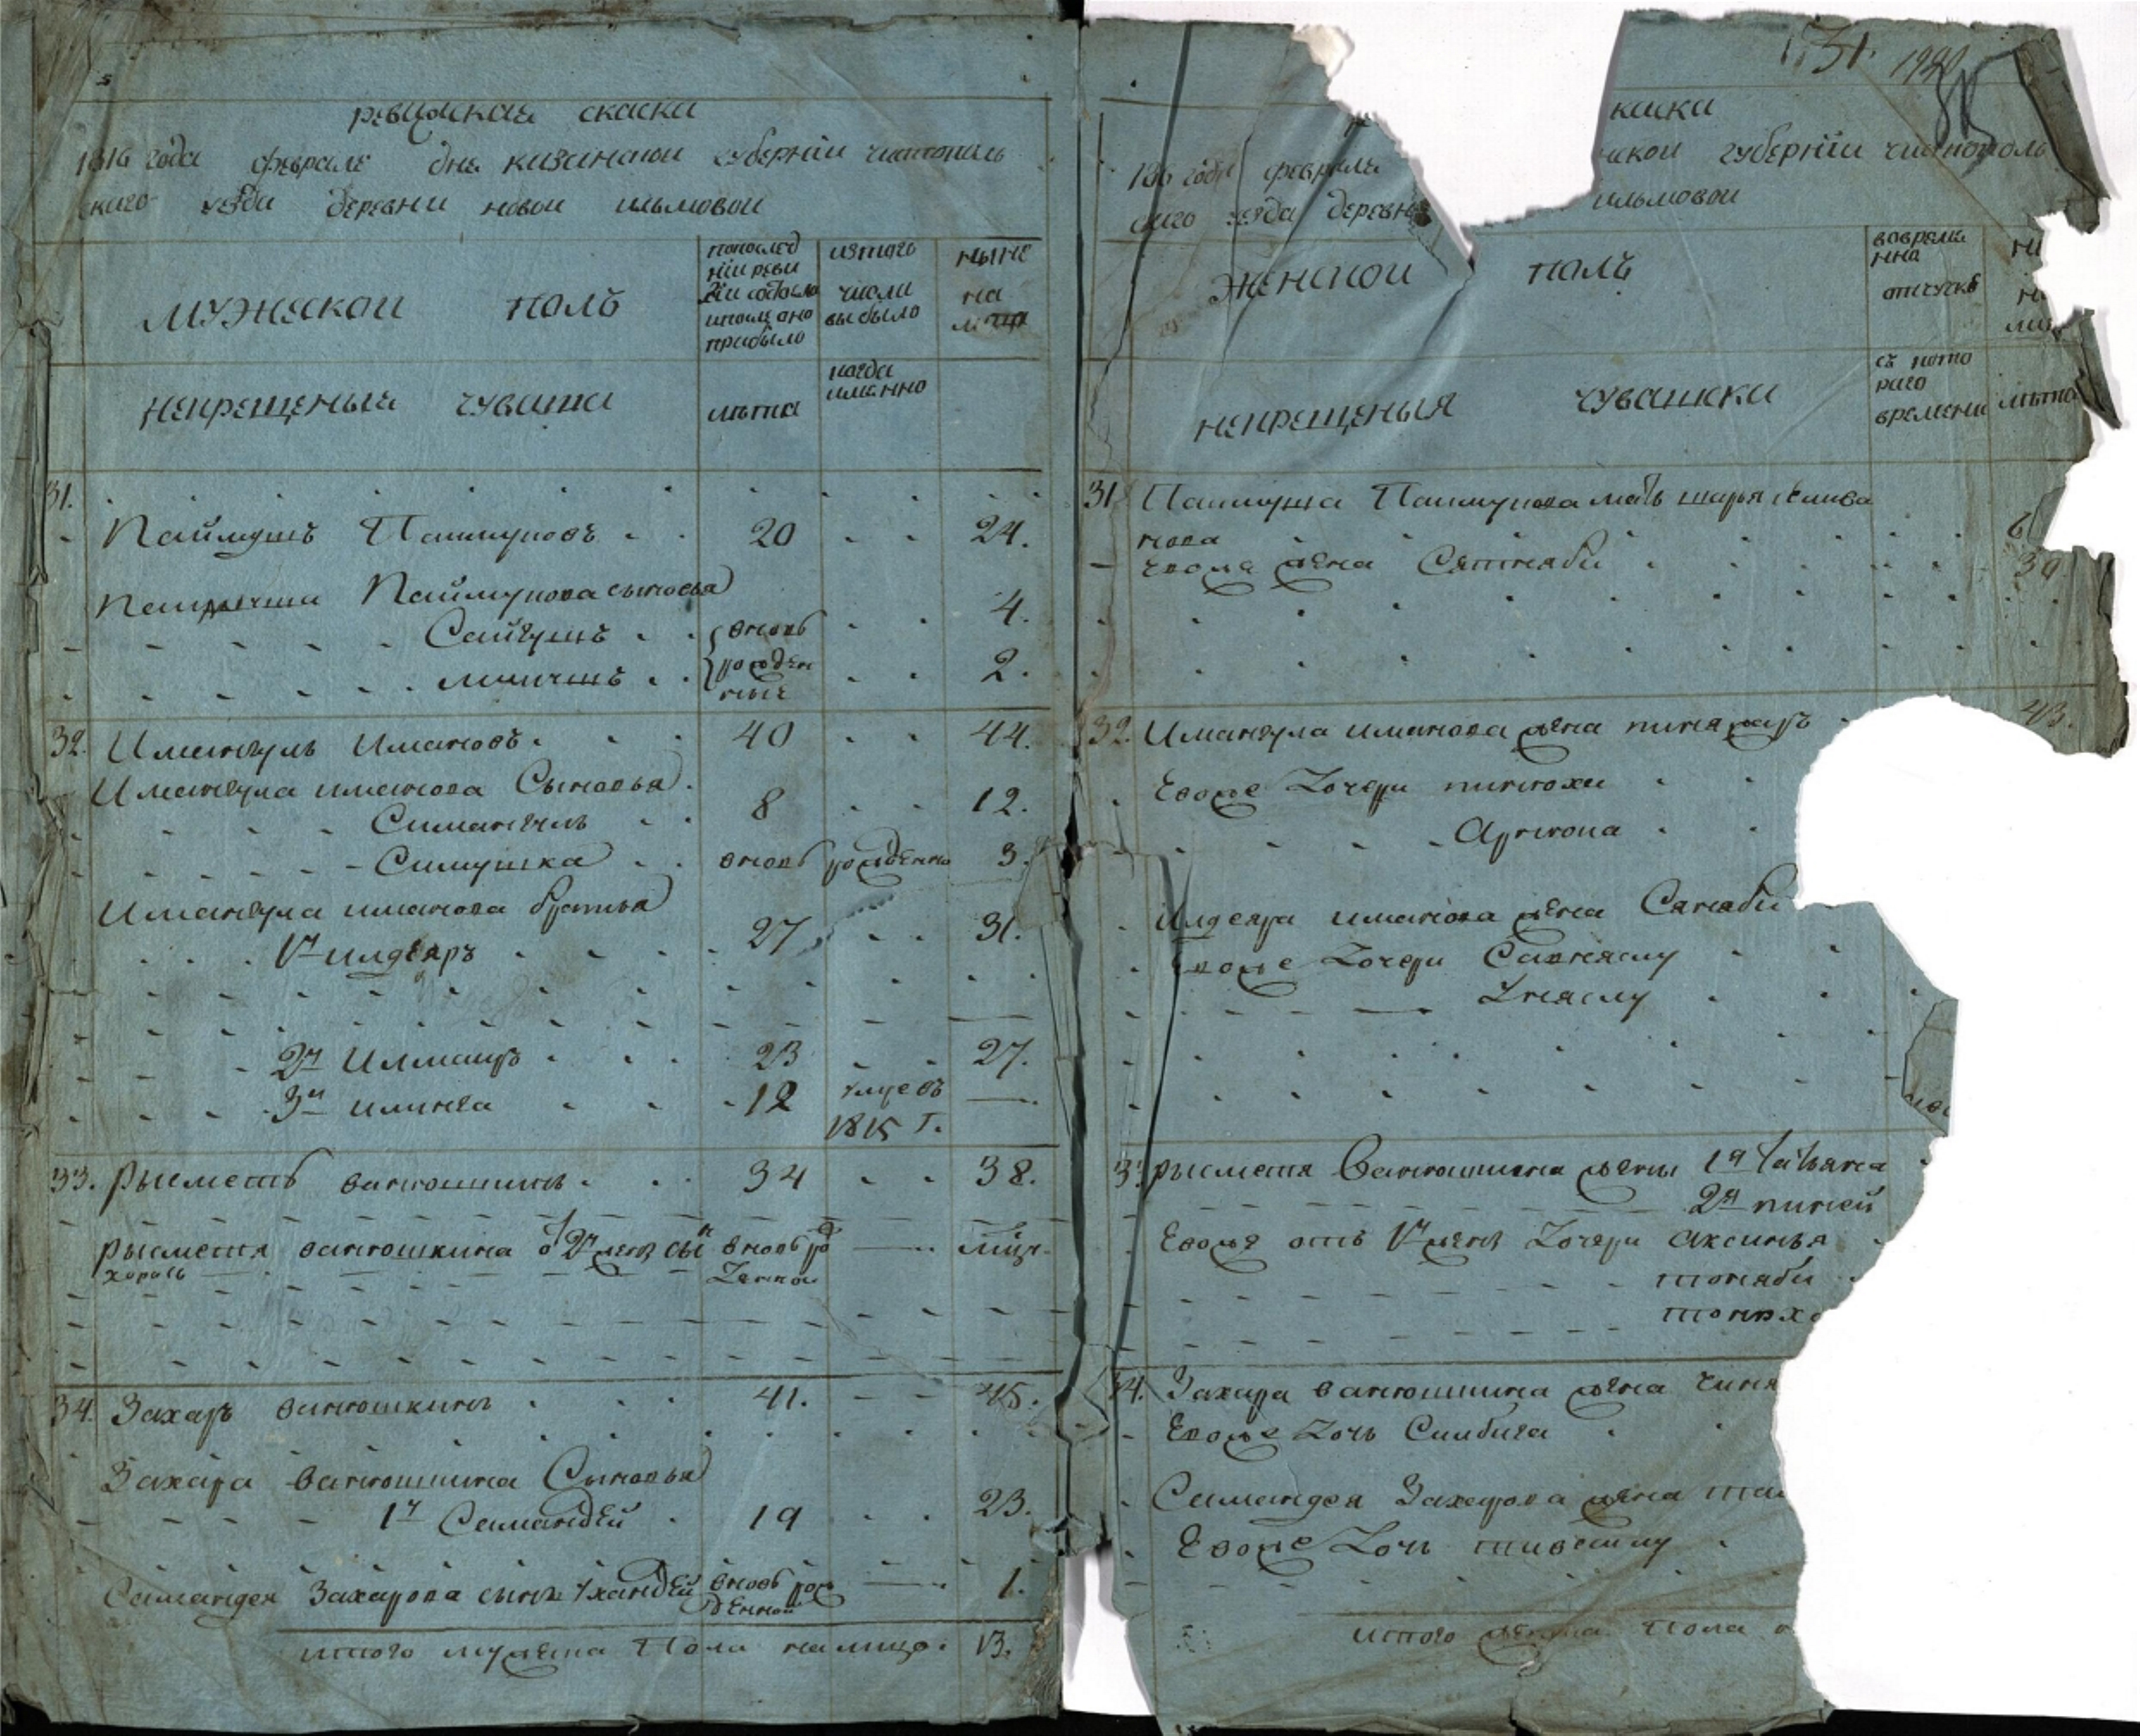 ревижская скаска
1816 года февраля дня казанской губернiи чистополь
скаго уезда деревни новой ильмовой
мужескои полъ
по послед
нiй реви
зiи состояло
и после оно
прибыло
изтого
числа
выбыло
ныне
на
лицо
некрещеныя чуваша
лѣта
когда
именно
31.
Паймушъ Паимуковъ 20 24.
Паймукова сыновья
Сайгушъ вновь 4.
рожден
ные 2.
32. Имангулъ Имановъ 40 44.
Имангула иманова Сыновья
Симангулъ 8 12.
Симушка вновь рожденно 3.
Имангула иманова братья
1й илдеяръ 27 31.
2й Илмаиръ 23 27.
3й илинга 12 умре въ
1815 г.
33. рысметь ванюшкинъ 34 38.
рысметя ванюшкина от 2й жен сын вновь ро
денной
34. Захаръ ванюшкинъ 41. 45.
Захара ванюшкина Сыновья
1й Самандей 19 23.
Самандея Захарова сынъ Ухандей вновь рож 1.
денной
итого мужеска Пола налицо. 13.
731. 1920
каски
1816 года февраля ской губернiи чистополь
скаго уезда деревни ильмовой
женской полъ
вовремя
нна
отлучкѣ
некрещеныя чувашки
съ кото
раго
времени
лѣта
31 Паимуша Паимукова мать шарья
нова 6
жена Сятняби 39
32. Имангула иманова жена 43.
Евоже Дочери пинюхи
Арикона
Илдеяра иманова жена Саняби
Евоже Дочери Савняслу
Унаслу
33 рысметя Ванюшкина жены 1я татьяна
2я пиней
Евоже отъ 1й жены Дочери аксинья
тоняби
34. Захара ванюшкина жена чиня
Евоже Дочь Силбига
Самандея Захарова жена
Евоже Дочь
итого женска пола